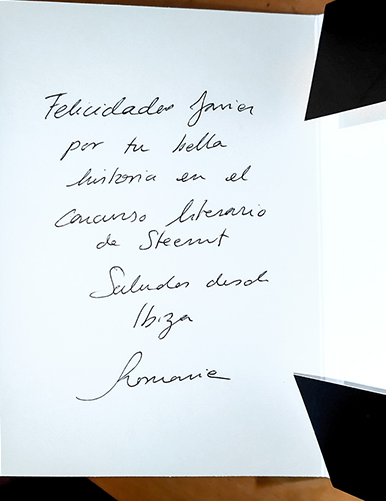 Felicidades Javier
por tu bella
historia en el
concurso literario
de Steemit
Saludos desde
Ibiza
Romarie